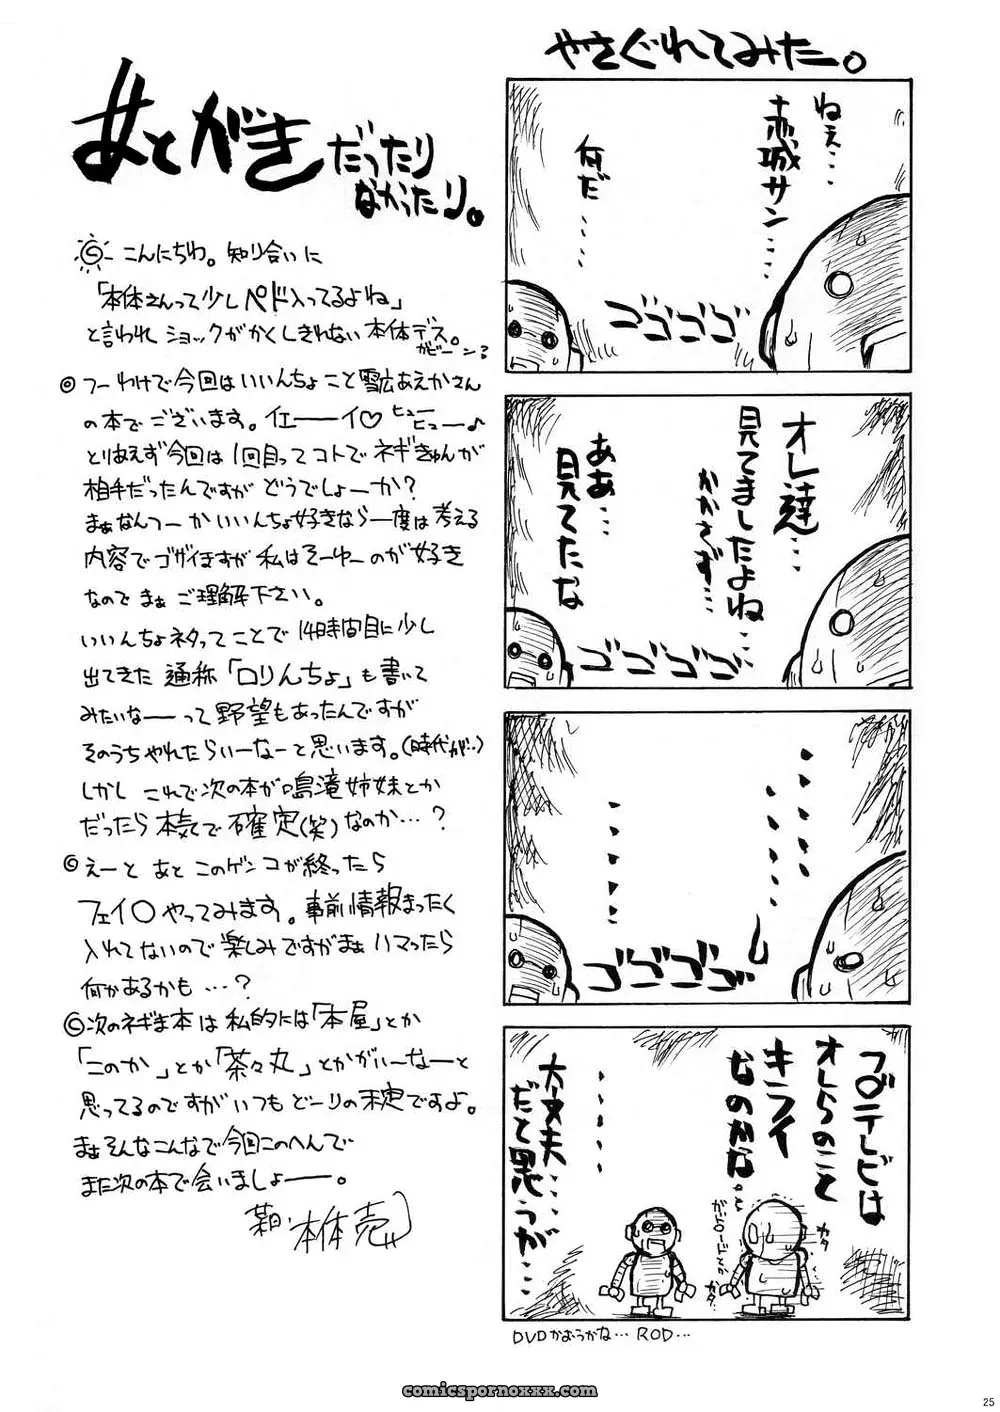 あとがきだったり
なかったり。
こんにちわ。知り合いに
「本体さんって少しペド入ってるよね」
と言われショックがかくしきれない本体デス。
ガビーン
つーわけで今回はいいんちょこと雪広あえかさん
の本でございます。イエーーイ♡ヒューヒュー♪
とりあえず今回は1回目ってコトでネギきゅんが
相手だったんですがどうでしょーか?
まぁなんつーかいいんちょ好きなら一度は考える
内容でゴザイますが私はそーゆーのが好き
なのでまぁご理解下さい。
いいんちょネタってことで14時間目に少し
出てきた通称「ロりんちょ」も書いて
みたいなーーって野望もあったんですが
そのうちやれたらいーなーと思います。(時代が‥)
しかしこれで次の本が鳴滝姉妹とか
だったら本気で確定(笑)なのか…?
えーとあとこのゲンコが終ったら
フェイ○やってみます。事前情報まったく
入れてないので楽しみですがまぁハマったら
何かあるかも…?
次のネギま本は私的には「本屋」とか
「このか」とか「茶々丸」とかがいーなーと
思ってるのですがいつもどーりの未定ですよ。
まぁそんなこんなで今回このへんで
また次の本で会いましょーー。
本体売
やさぐれてみたー。
ねぇ…
赤城サン……
何だ……
ゴゴゴゴ
オレ達…
見てましたよね…
かかさず…
ああ…
見てたな
ゴゴゴゴ
ゴゴゴゴ
フ○テレビは
オレらのこと
キライ
なのかな。と
カタ
カタ
大丈夫…
だと思うが…
DVDかおうかな… ROD…
comicspornoxxx.com
25